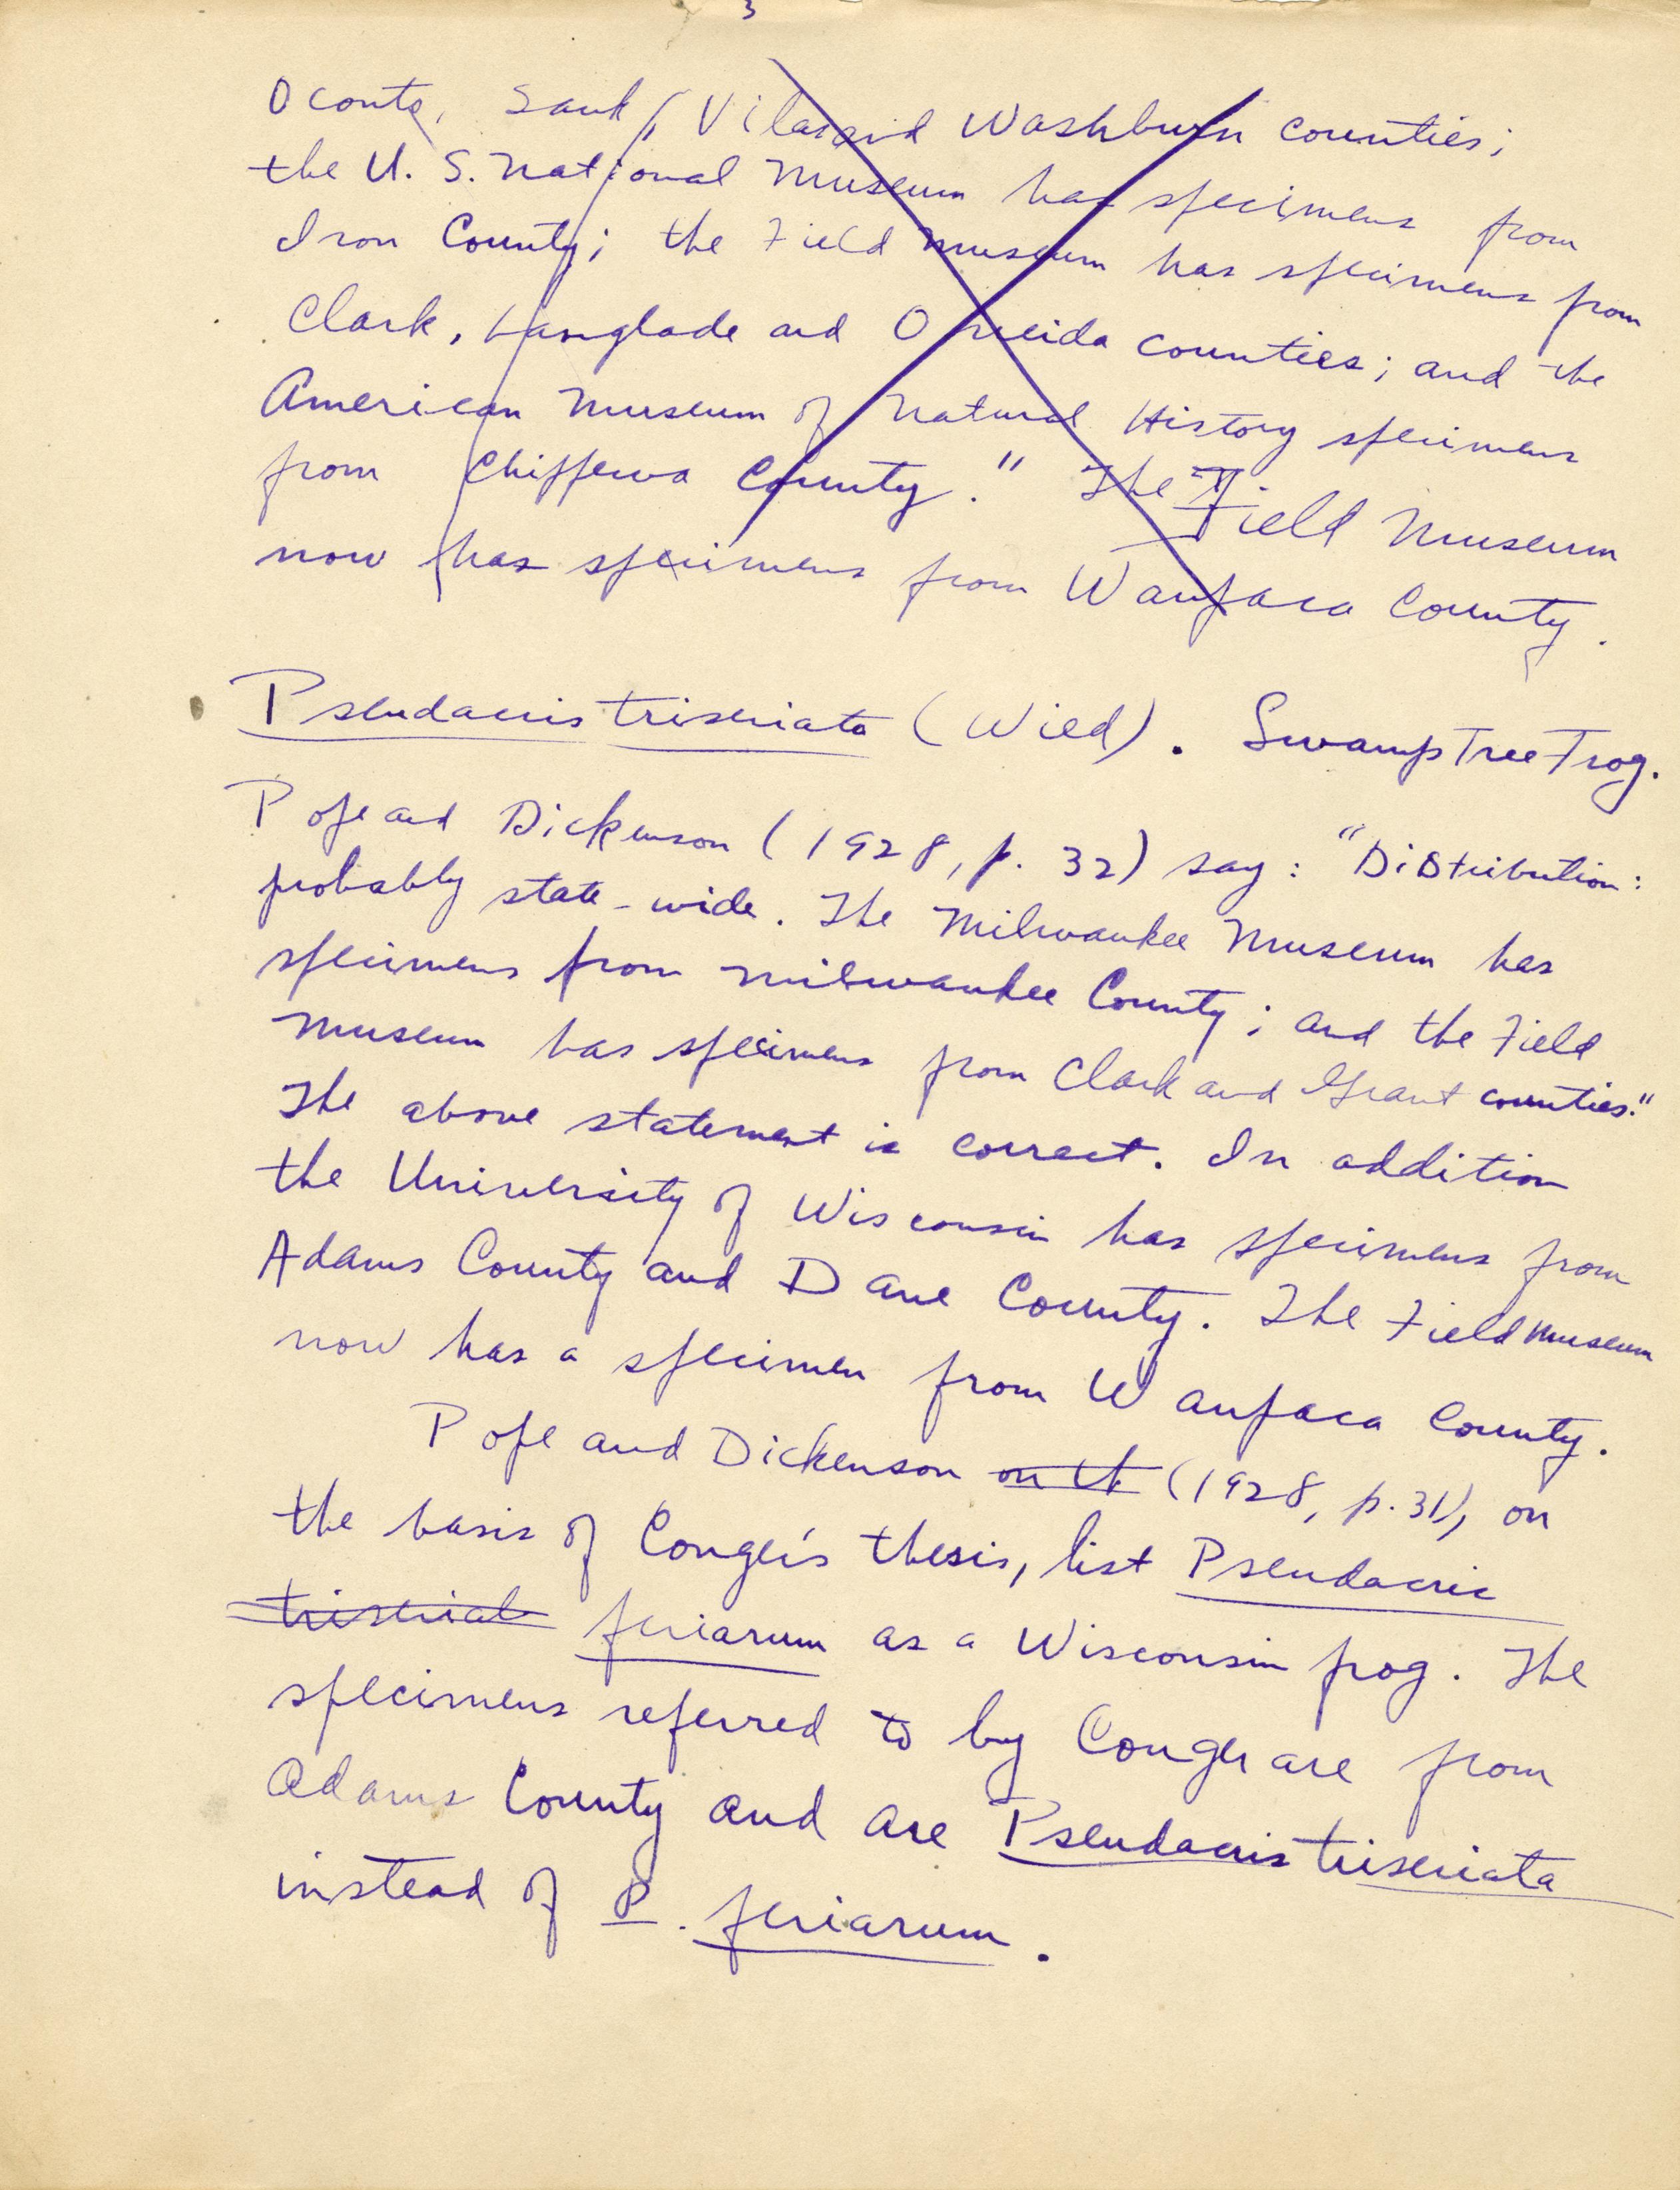 3
Oconto, Sauk, Vilas and Washburn counties;
the U. S. National Museum has specimens from
Iron County; the Field Museum has specimens from
Clark, Langlade and Oneida counties; and the
American Museum of Natural History specimens
from Chippewa County." The Field Museum
now has specimens from Waupaca County.
Pseudacris triseriata (Wied). Swamp Tree Frog.
Pope and Dickenson (1928, p. 32) say: "Distribution:
probably state-wide. The Milwaukee Museum has
specimens from Milwaukee County; and the Field
Museum has specimens from Clark and Grant counties."
The above statement is correct. In addition
the University of Wisconsin has specimens from
Adams County and Dane County. The Field Museum
now has a specimen from Waupaca County.
Pope and Dickenson on th (1928, p. 31), on
the basis of Conger's thesis, list Pseudacris
triseriat feriarum as a Wisconsin frog. The
specimens referred to by Conger are from
Adams County and are Pseudacris triseriata
instead of P. feriarum.